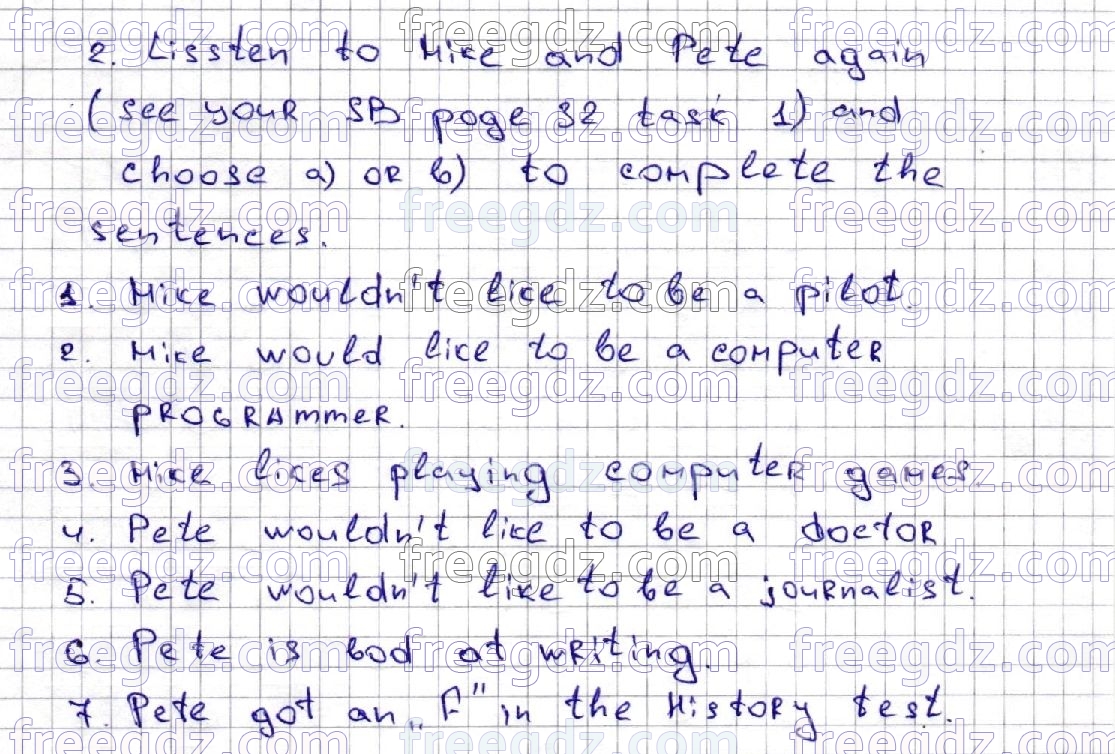 2. Lissten to Mike and Pete again
(see your SB page 32 task 1) and
choose a) or b) to complete the
sentences.
1. Mike wouldn't like to be a pilot.
2. Mike would like to be a computer
programmer.
3. Mike likes playing computer games.
4. Pete wouldn't like to be a doctor
5. Pete wouldn't like to be a journalist.
6. Pete is bad at writing.
7. Pete got an „F" in the History test.